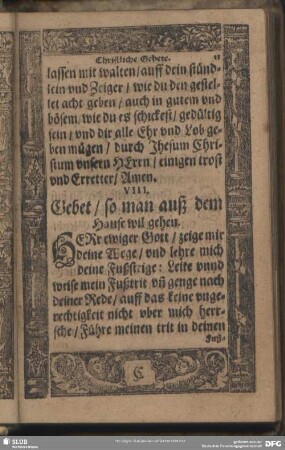 Christliche Gebete.
lassen mit walten / auff dein stünd-
lein vnd Zeiger / wie du den gestel-
let acht geben / auch in gutem vnd
bösem / wie du es schickest / gedültig
sein / vnd dir alle Ehr vnd Lob ge-
ben mügen / durch Jhesum Chri-
stum vnsern HErrn / einigen trost
vnd Erretter / Amen.
VIII.
Gebet / so man auß dem
Hause wil gehen.
HERr ewiger Gott / zeige mir
deine Wege / vnd lehre mich
deine Fußstige: Leite vnnd
weise mein Fußtrit vñ genge nach
deiner Rede / auff das keine vnge-
rechtigkeit nicht vber mich herr-
sche / Führe meinen trit in deinen
Fuß-
C
SLUB
DFG